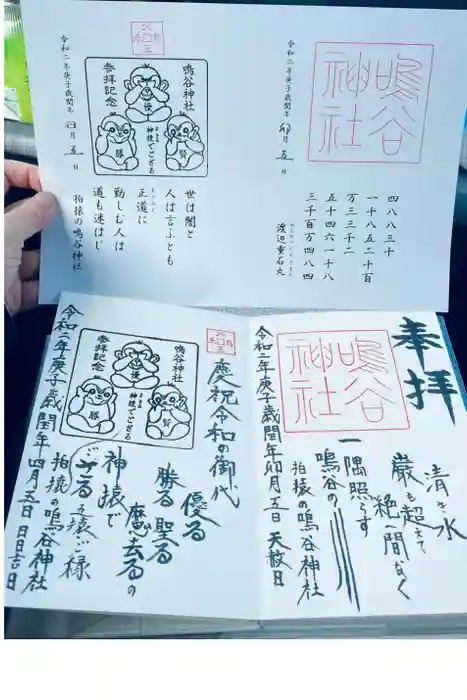 鳴谷
神社
令和二年庚子歳閏年 卯月 五日
四八八三十
一十八五二十百
万三三千二
五十四六一十八
三千百万四八四
渡辺重石丸
鳴谷神社
参拝記念
優
勝
賢
神猿でござる
令和二年庚子歳閏年 四月 五日
世は闇と
人は言ふとも
正道に
勤しむ人は
道も迷はじ
拍猿の鳴谷神社
奉拝
清き水
巌も超えて
絶へ間なく
一隅照らす
鳴谷の
拍猿の鳴谷神社
鳴谷
神社
令和二年庚子歳閏年卯月五日 天赦日
慶祝令和の御代
優る
勝る 聖る
魔去るの
神猿で
ござる
拍猿の鳴谷神社
鳴谷神社
参拝記念
勝
賢
神猿でござる
令和二年庚子歳閏年四月五日